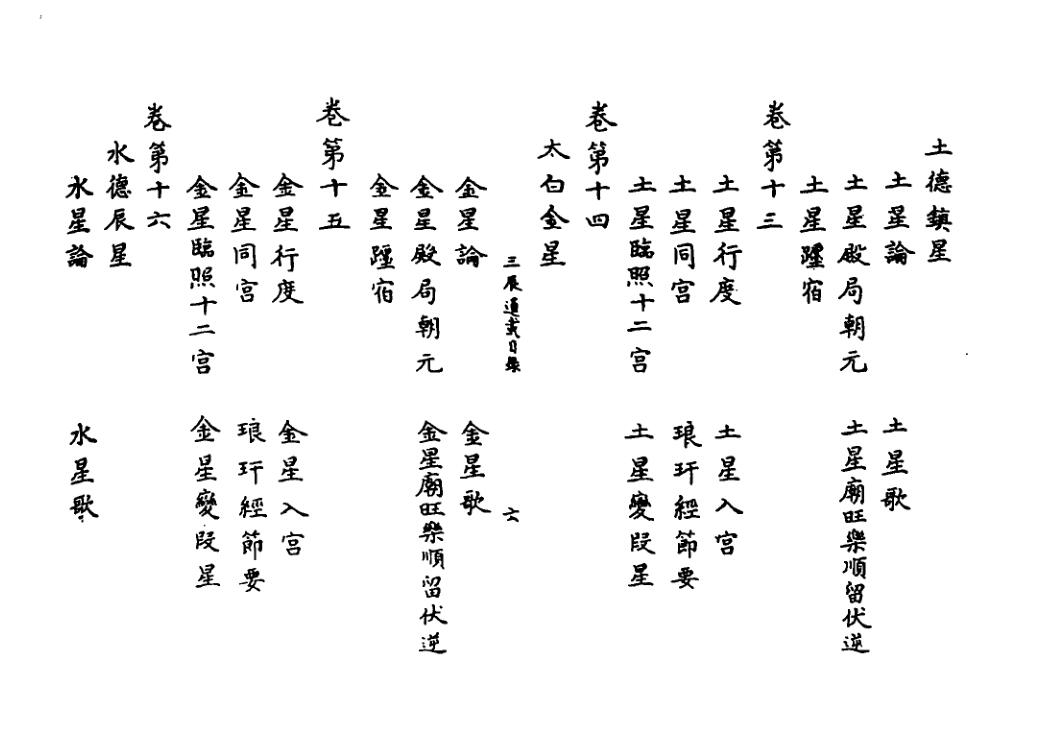 土德鎮星
土星論 土星歌
土星殿局朝元 土星廟旺樂順留伏逆
土星躔宿
卷第十三
土星行度 土星入宮
土星同宮 琅玕經節要
土星臨照十二宮 土星變段星
卷第十四
太白金星
三辰通載目錄 六
金星論 金星歌
金星殿局朝元 金星廟旺樂順留伏逆
金星躔宿
卷第十五
金星行度 金星入宮
金星同宮 琅玕經節要
金星臨照十二宮 金星變段星
卷第十六
水德辰星
水星論 水星歌